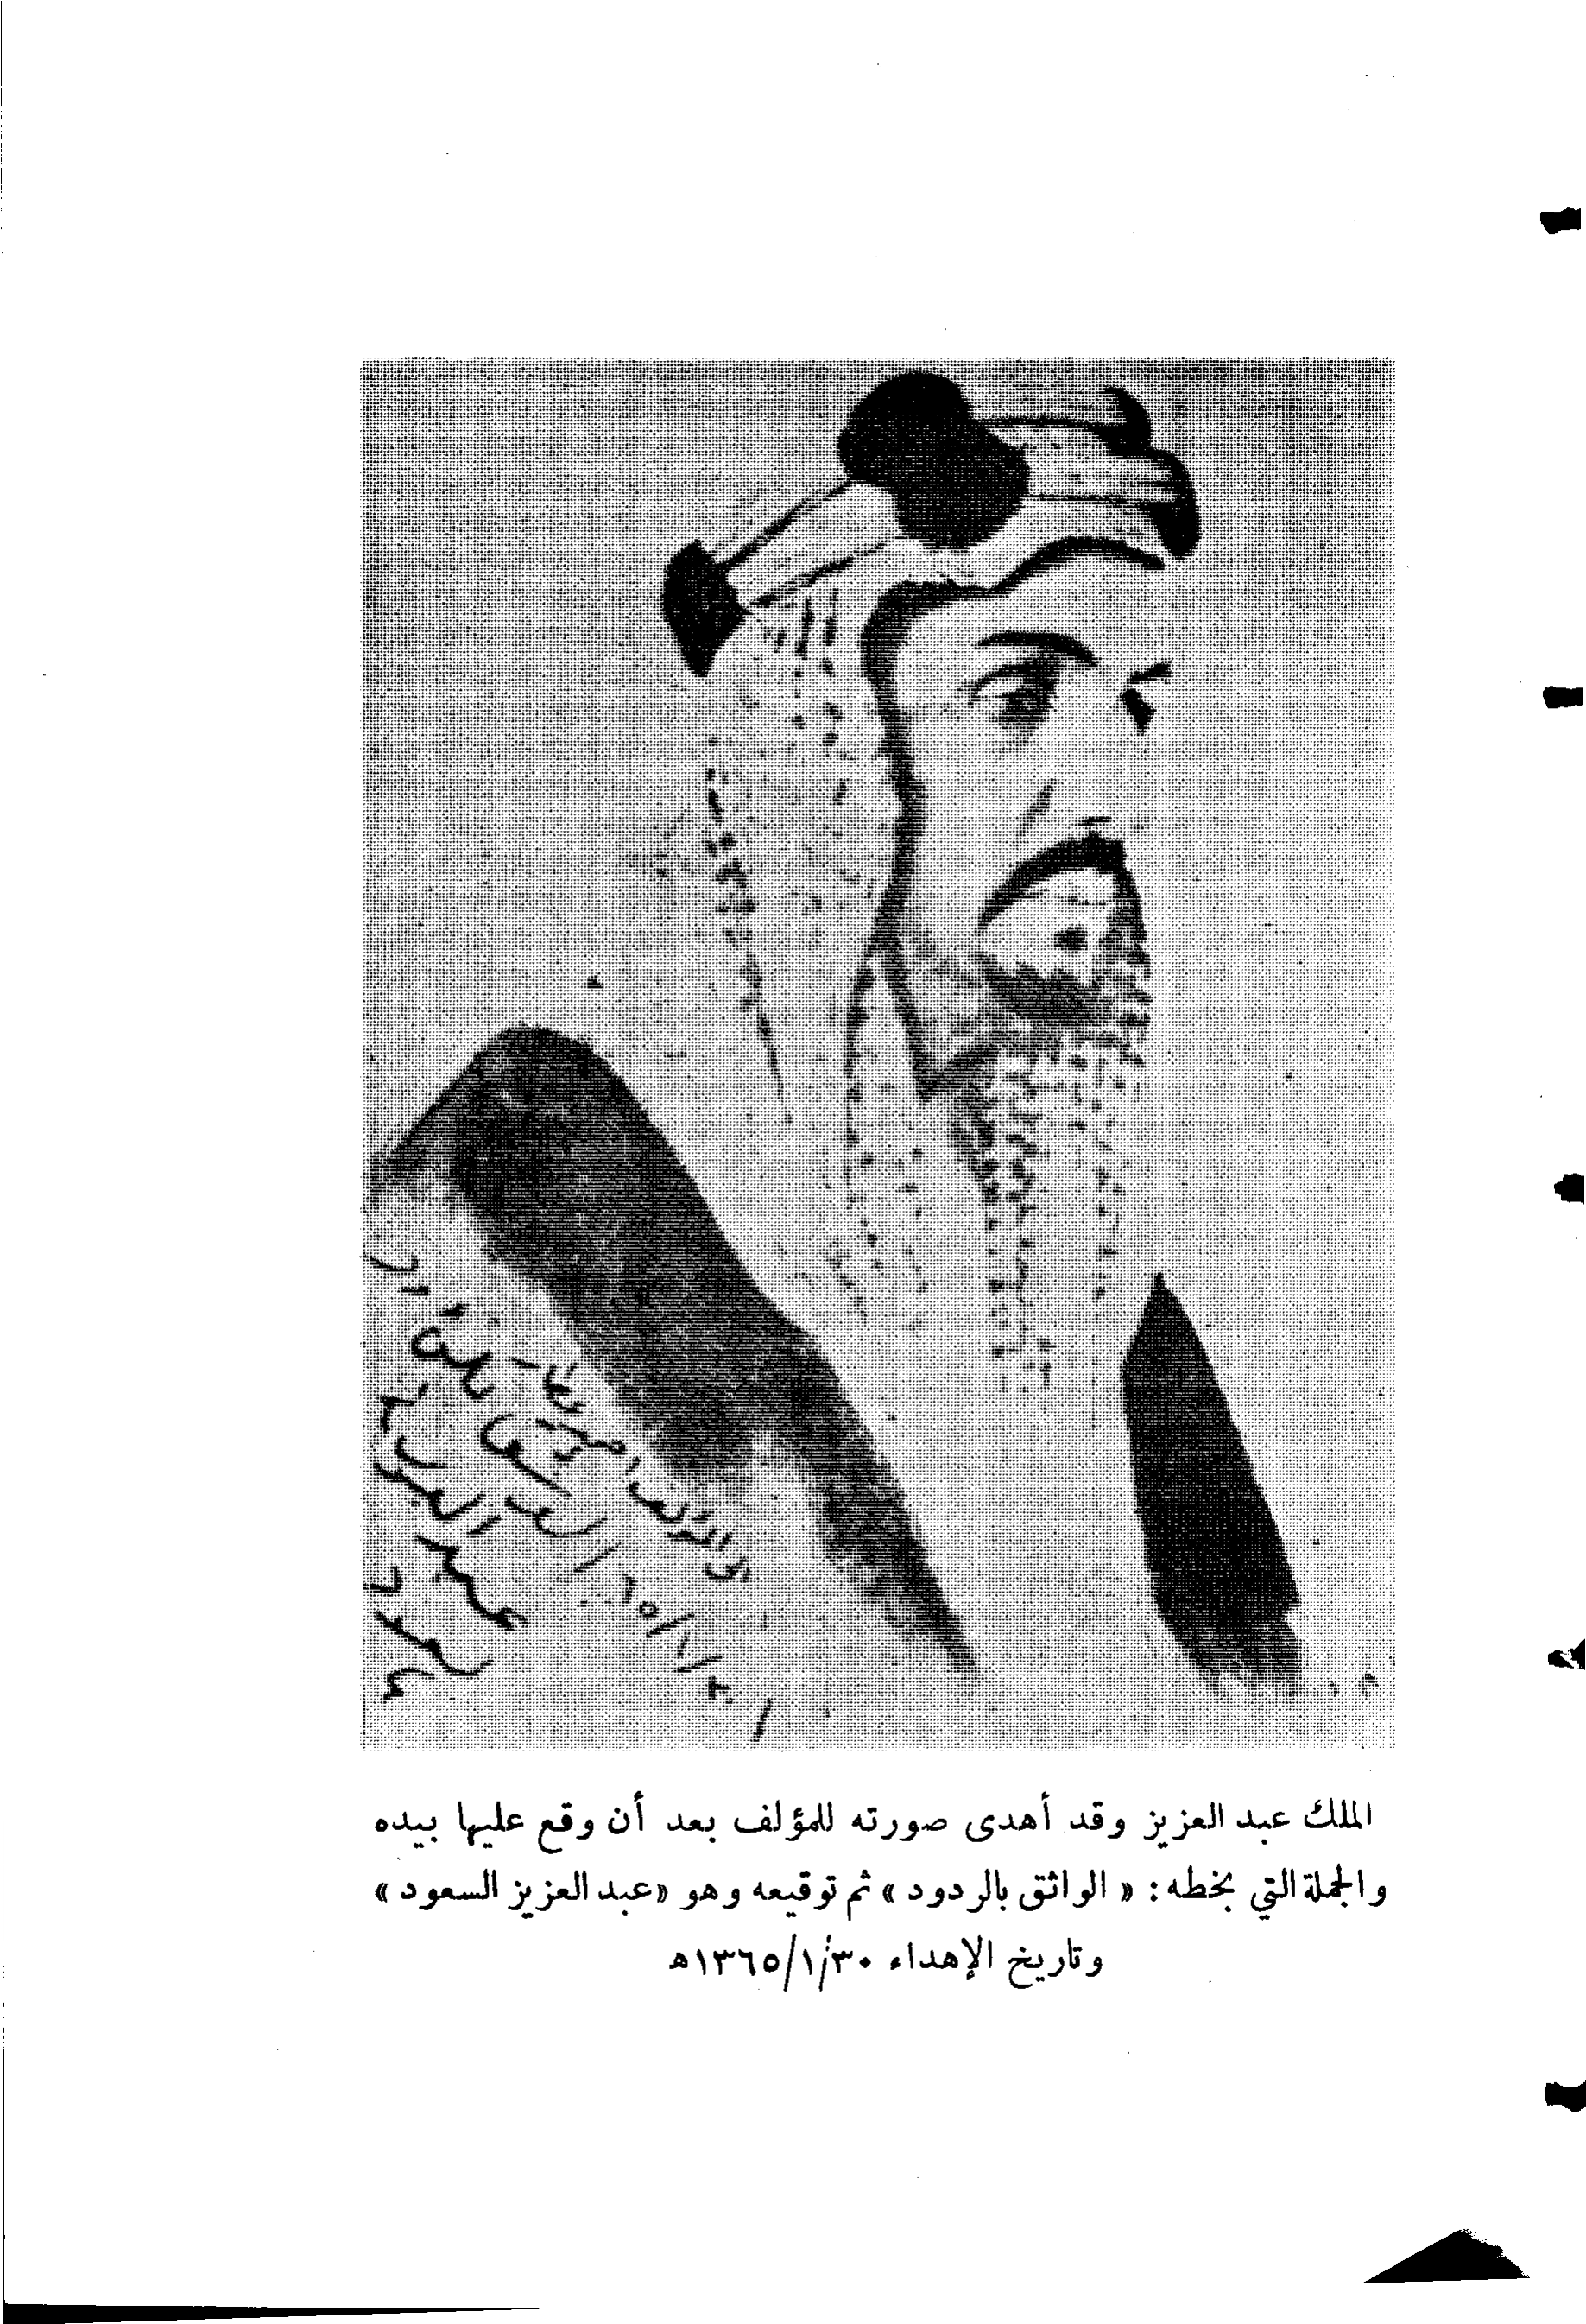 الملك عبد العزيز وقد أهدى صورته للمؤلف بعد أن وقع عليها بيده
والجملة التي بخطه: « الواثق بالردود » ثم توقيعه وهو «عبد العزيز السعود»
وتاريخ الإهداء ١٣٦٥/١/٣٠ه